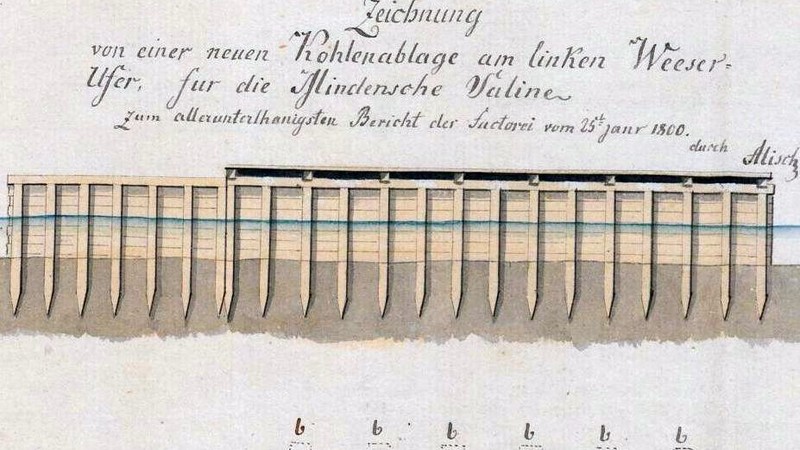 Zeichnung
von einer neuen Kohlenablage am linken Weeser-
Ufer, fur die Mindensche Saline
zum allerunterthanigsten Bericht der Factorei vom 25t. janr 1800.
durch Alisch
b b b b b b